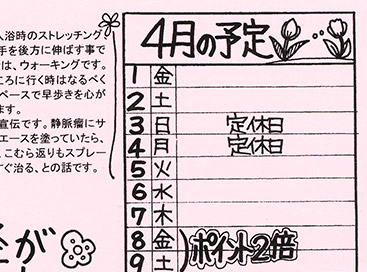 入浴時のストレッチング
手を後方に伸ばす事で
は、ウォーキングです。
ころに行く時はなるべく
ペースで早歩きを心が
ます。
宣伝です。静脈瘤にサ
エースを塗っていたら、
、こむら返りもスプレー
すぐ治る、との話です。
が
4月の予定
1 金
2 土
3 日 定休日
4 月 定休日
5 火
6 水
7 木
8 金 ポイント2倍
9 土